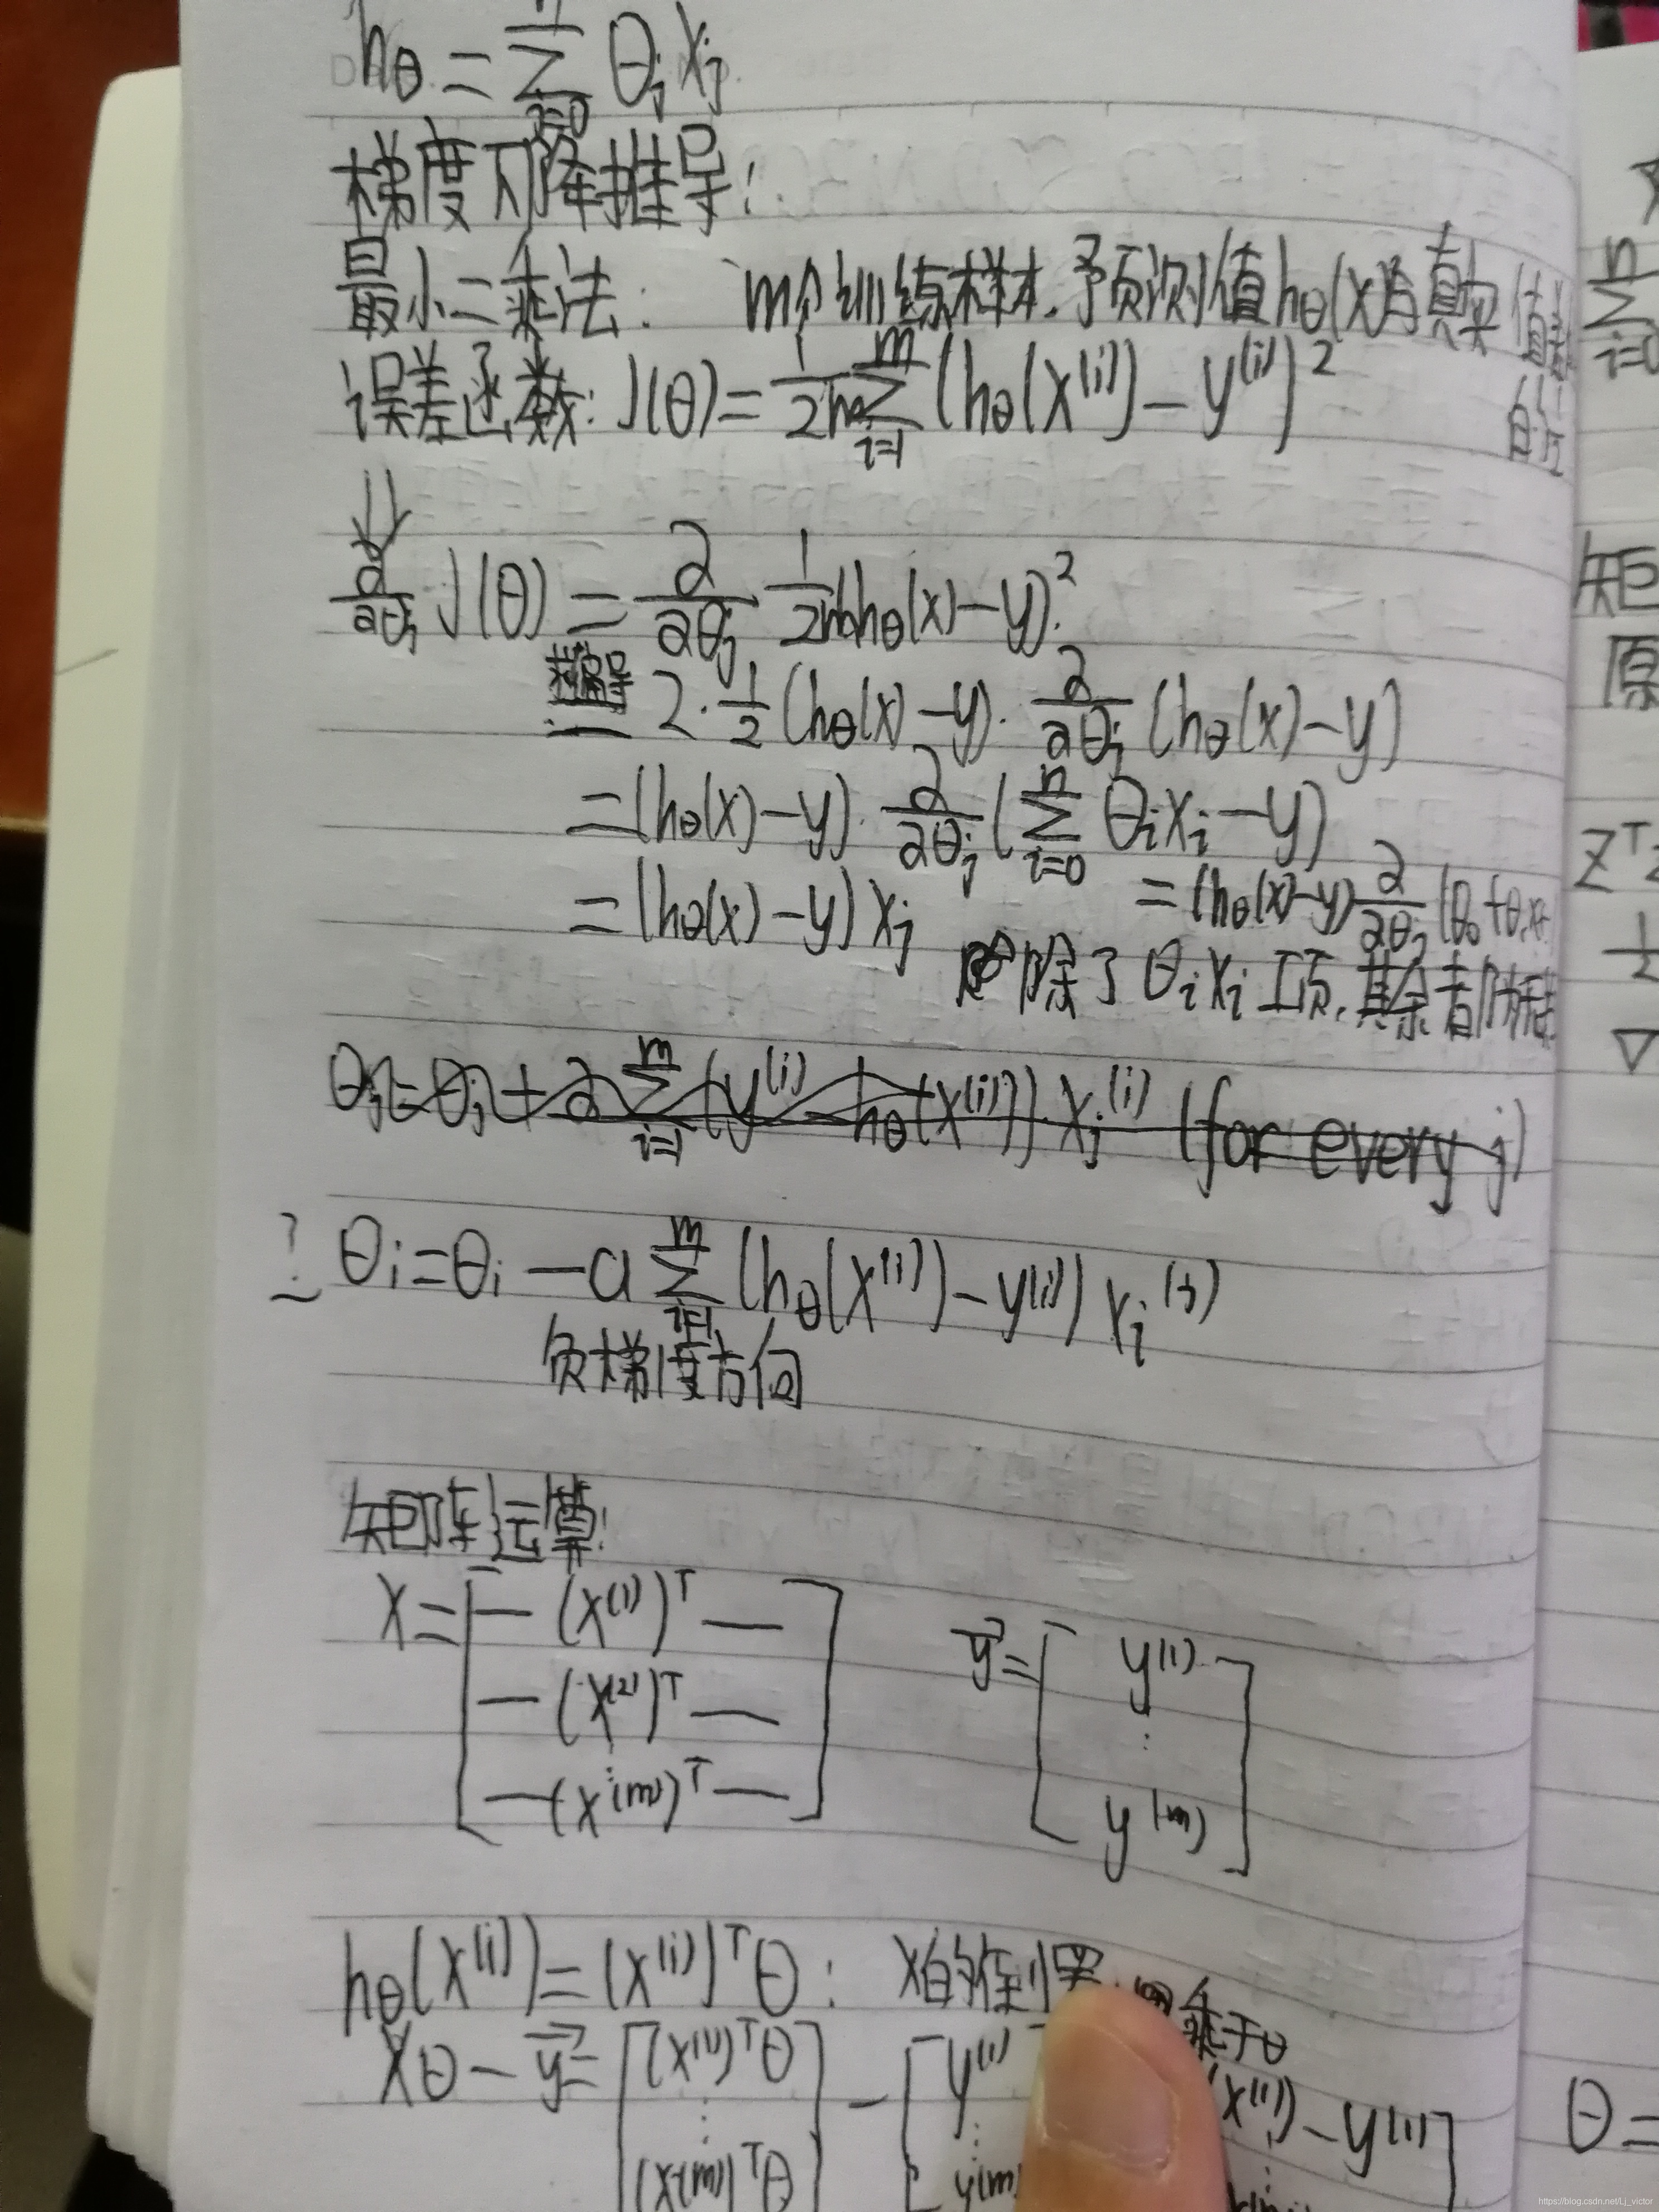 hθ = Σ_{j=0}^{n} θj xj
梯度下降推导:
最小二乘法: m个训练样本.予页测值hθ(x)与真实值
误差函数: J(θ) = 1/2m Σ_{i=1}^{m} (hθ(x^(i)) - y^(i))²
的
⇓
∂/∂θj J(θ) = ∂/∂θj 1/2m (hθ(x) - y)².
= 2·1/2 (hθ(x) - y)· ∂/∂θj (hθ(x) - y)
= (hθ(x) - y)· ∂/∂θj (Σ_{i=0}^{n} θi xi - y)
= (hθ(x) - y) xj = (hθ(x) - y) ∂/∂θj (θ0 + θ1x+
除了 θi xi 项,其余都
θj = θj + ∂ Σ_{i=1}^{m} (y^(i) - hθ(x^(i))) xj^(i) (for every j)
? θi = θi - a Σ_{i=1}^{m} (hθ(x^(i)) - y^(i)) xi^(j)
负梯度方向
矩阵运算:
X = [ — (x^(1))^T — y⃗ = [ y^(1)
— (x^(2))^T — ⋮
⋮
— (x^(m))^T — ] y^(m) ]
hθ(x^(i)) = (x^(i))^T θ : x的 乘于θ
Xθ - y⃗ = [ (x^(1))^T θ ] - [ y^(1) (x^(1)) - y^(1) ]
⋮ ⋮ ⋮
(x^(m))^T θ y^(m)
Σ_{i=0}^{n}
矩
原
Z^T z
1/2
∇
θ =
https://blog.csdn.net/Lj_victor